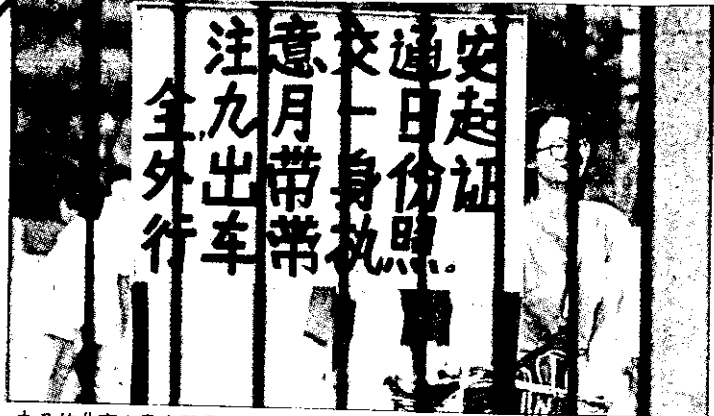 注意交通安
全,九月一日起
外出带身份证
行车带执照。